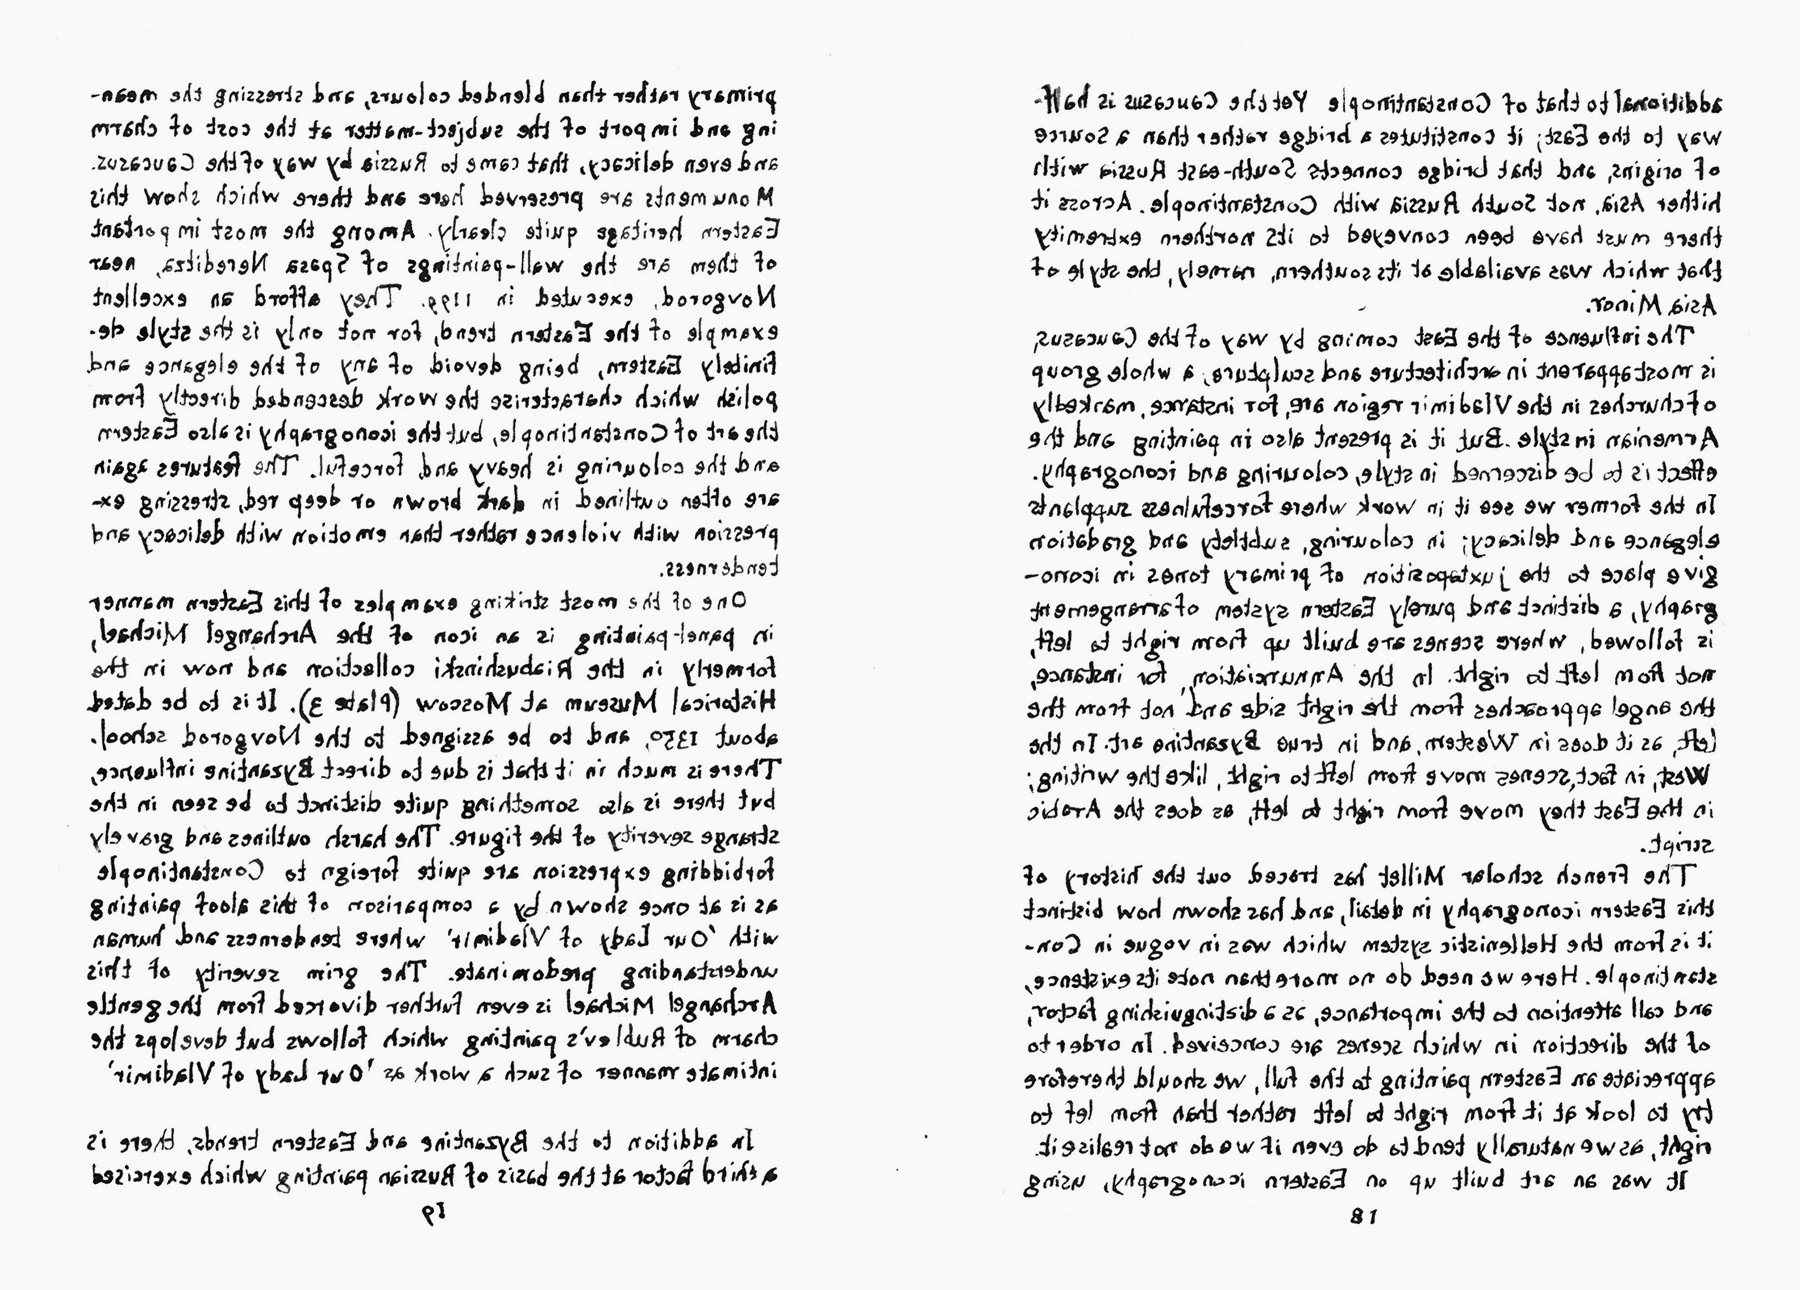 additional to that of Constantinople Yet the Caucasus is half-
way to the East; it constitutes a bridge rather than a source
of origins, and that bridge connects South-east Russia with
hither Asia, not South Russia with Constantinople. Across it
there must have been conveyed to its northern extremity
that which was available at its southern, namely, the style of
Asia Minor.
The influence of the East coming by way of the Caucasus,
is most apparent in architecture and sculpture; a whole group
of churches in the Vladimir region are, for instance, markedly
Armenian in style. But it is present also in painting and the
effect is to be discerned in style, colouring and iconography.
In the former we see it in work where forcefulness supplants
elegance and delicacy; in colouring, subtlety and gradation
give place to the juxtaposition of primary tones in icono-
graphy, a distinct and purely Eastern system of arrangement
is followed, where scenes are built up from right to left,
not from left to right. In the Annunciation, for instance,
the angel approaches from the right side and not from the
left, as it does in Western, and in true Byzantine art. In the
West, in fact, scenes move from left to right, like the writing;
in the East they move from right to left, as does the Arabic
script.
The French scholar Millet has traced out the history of
this Eastern iconography in detail, and has shown how distinct
it is from the Hellenistic system which was in vogue in Con-
stantinople. Here we need do no more than note its existence,
and call attention to the importance, as a distinguishing factor,
of the direction in which scenes are conceived. In order to
appreciate an Eastern painting to the full, we should therefore
try to look at it from right to left rather than from lef to
right, as we naturally tend to do even if we do not realise it.
It was an art built up on Eastern iconography, using
18
primary rather than blended colours, and stressing the mean-
ing and import of the subject-matter at the cost of charm
and even delicacy, that came to Russia by way of the Caucasus.
Monuments are preserved here and there which show this
Eastern heritage quite clearly. Among the most important
of them are the wall-paintings of Spasa Nereditza, near
Novgorod, executed in 1199. They afford an excellent
example of the Eastern trend, for not only is the style de-
finitely Eastern, being devoid of any of the elegance and
polish which characterise the work descended directly from
the art of Constantinople, but the iconography is also Eastern
and the colouring is heavy and forceful. The features again
are often outlined in dark brown or deep red, stressing ex-
pression with violence rather than emotion with delicacy and
tenderness.
One of the most striking examples of this Eastern manner
in panel-painting is an icon of the Archangel Michael,
formerly in the Riabushinski collection and now in the
Historical Museum at Moscow (Plate 3). It is to be dated
about 1350, and to be assigned to the Novgorod school.
There is much in it that is due to direct Byzantine influence,
but there is also something quite distinct to be seen in the
strange severity of the figure. The harsh outlines and gravely
forbidding expression are quite foreign to Constantinople
as is at once shown by a comparison of this aloof painting
with 'Our Lady of Vladimir' where tenderness and human
understanding predominate. The grim severity of this
Archangel Michael is even further divorced from the gentle
charm of Rublev's painting which follows but develops the
intimate manner of such a work as 'Our Lady of Vladimir'
In addition to the Byzantine and Eastern trends, there is
a third factor at the basis of Russian painting which exercised
19